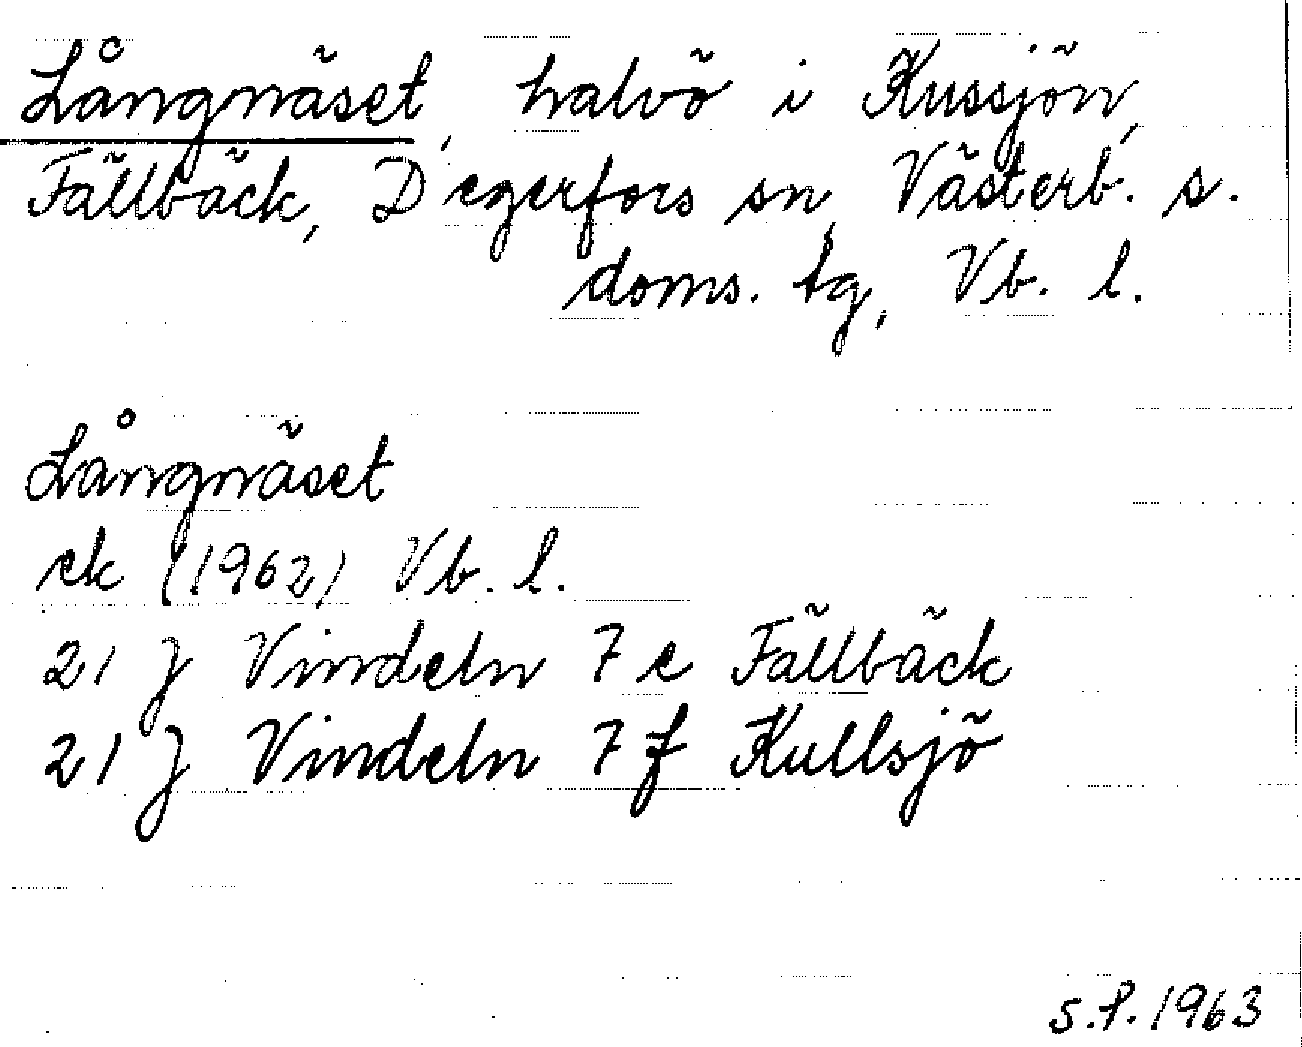 Långnäset, halvö i Kussjön,
Fällbäck, Degerfors sn, Västerb. s.
doms. tg, Vb. l.
Långnäset
ek (1962) Vb. l.
21 J Vindeln 7 e Fällbäck
21 J Vindeln 7 f Kullsjö
S.P. 1963